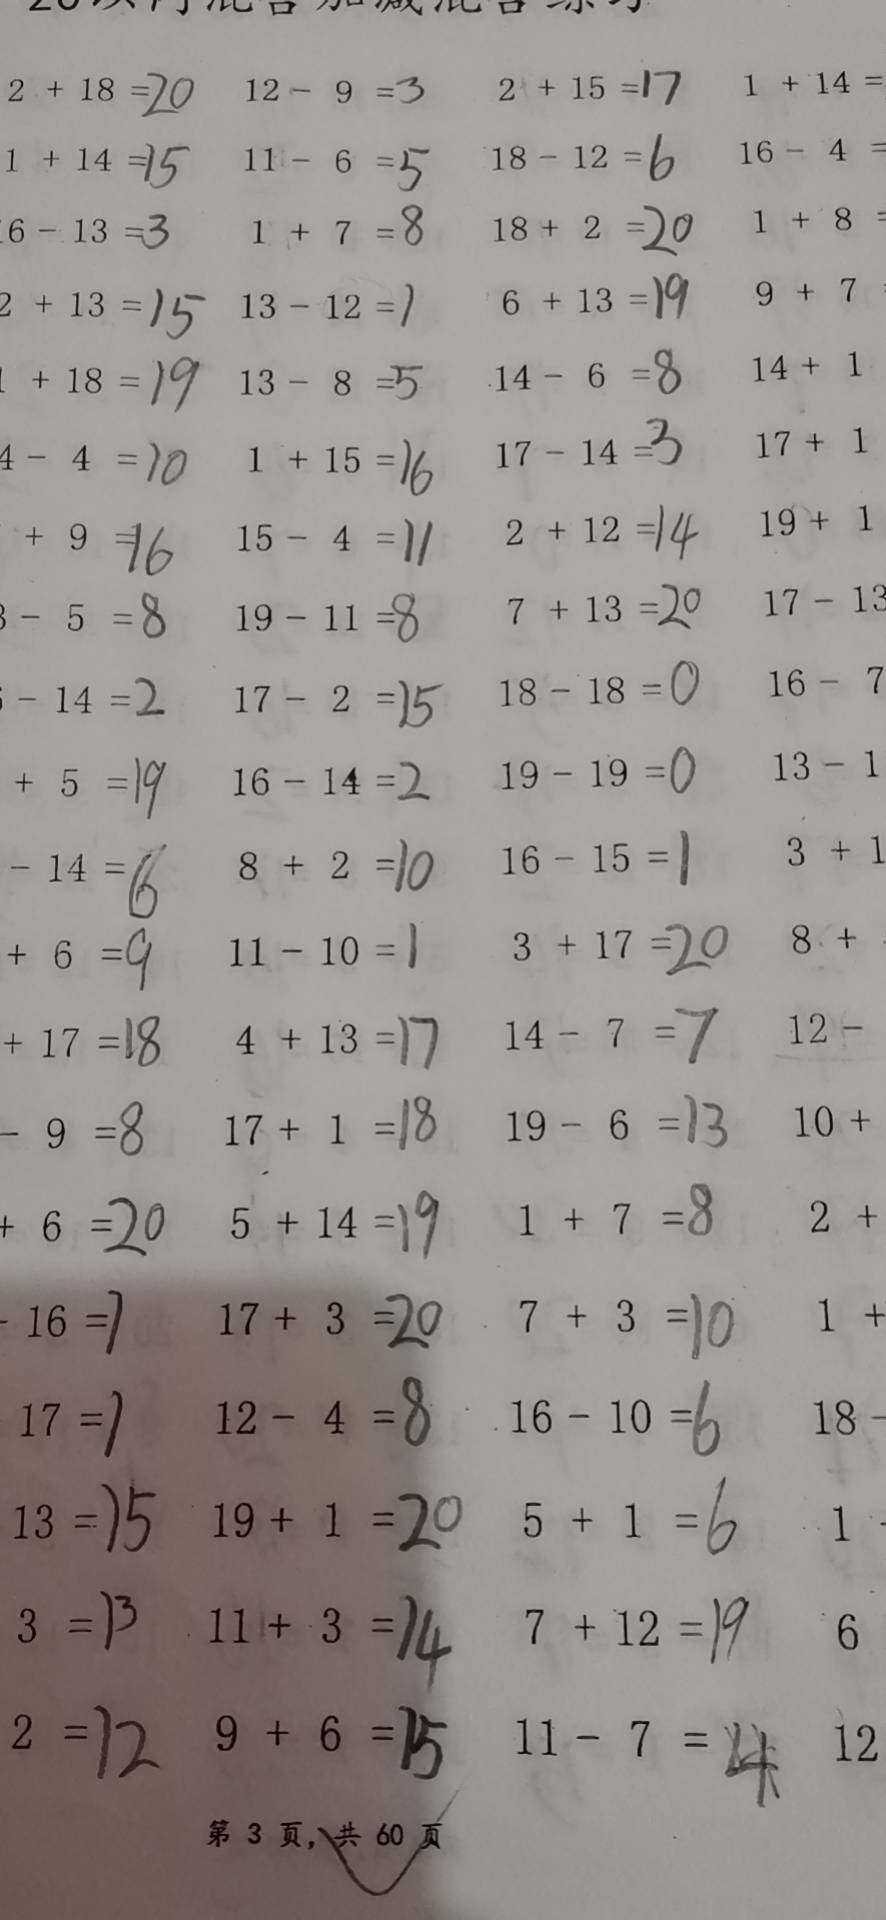 20以内混合加减混合练习
2 + 18 =20 12 - 9 =3 2 + 15 =17 1 + 14 =
1 + 14 =15 11 - 6 =5 18 - 12 =6 16 - 4 =
16 - 13 =3 1 + 7 =8 18 + 2 =20 1 + 8 =
2 + 13 =15 13 - 12 =1 6 + 13 =19 9 + 7
1 + 18 =19 13 - 8 =5 14 - 6 =8 14 + 1
4 - 4 =10 1 + 15 =16 17 - 14 =3 17 + 1
+ 9 =16 15 - 4 =11 2 + 12 =14 19 + 1
3 - 5 =8 19 - 11 =8 7 + 13 =20 17 - 13
- 14 =2 17 - 2 =15 18 - 18 =0 16 - 7
+ 5 =19 16 - 14 =2 19 - 19 =0 13 - 1
- 14 =6 8 + 2 =10 16 - 15 =1 3 + 1
+ 6 =9 11 - 10 =1 3 + 17 =20 8 +
+ 17 =18 4 + 13 =17 14 - 7 =7 12 -
- 9 =8 17 + 1 =18 19 - 6 =13 10 +
+ 6 =20 5 + 14 =19 1 + 7 =8 2 +
- 16 =1 17 + 3 =20 7 + 3 =10 1 +
17 =1 12 - 4 =8 16 - 10 =6 18 -
13 =15 19 + 1 =20 5 + 1 =6 1
3 =13 11 + 3 =14 7 + 12 =19 6
2 =12 9 + 6 =15 11 - 7 =4 12
第 3 页，共 60 页